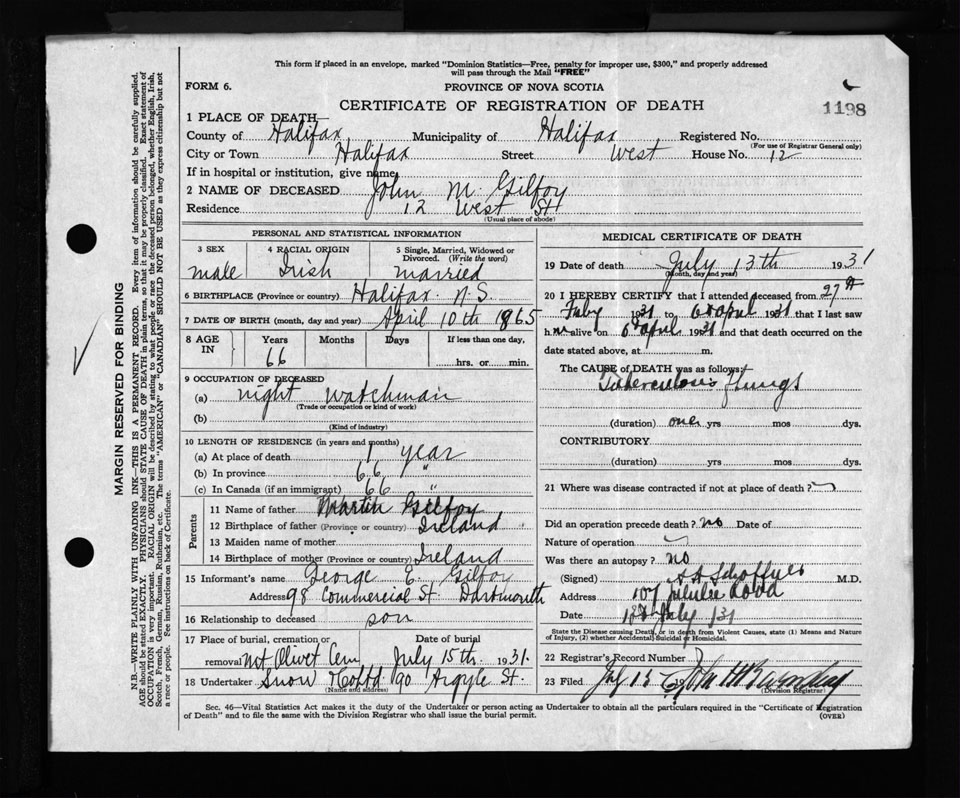 This form if placed in an envelope, marked "Dominion Statistics—Free, penalty for improper use, $300," and properly addressed
will pass through the Mail "FREE"
FORM 6.
PROVINCE OF NOVA SCOTIA
CERTIFICATE OF REGISTRATION OF DEATH
1198
1 PLACE OF DEATH—
County of Halifax Municipality of Halifax Registered No.
(For use of Registrar General only)
City or Town Halifax Street West House No. 12
If in hospital or institution, give name
2 NAME OF DECEASED John M. Gilfoy
Residence 12 West St
(Usual place of abode)
PERSONAL AND STATISTICAL INFORMATION
3 SEX 4 RACIAL ORIGIN 5 Single, Married, Widowed or
Divorced. (Write the word)
male Irish married
6 BIRTHPLACE (Province or country) Halifax N.S.
7 DATE OF BIRTH (month, day and year) April 10th 1865
8 AGE IN Years Months Days If less than one day,
66 hrs. or min.
9 OCCUPATION OF DECEASED
(a) night watchman
(Trade or occupation or kind of work)
(b)
(Kind of industry)
10 LENGTH OF RESIDENCE (in years and months)
(a) At place of death 1 year
(b) In province 66 "
(c) In Canada (if an immigrant) 66 "
Parents
11 Name of father Martin Gilfoy
12 Birthplace of father (Province or country) Ireland
13 Maiden name of mother
14 Birthplace of mother (Province or country) Ireland
15 Informant's name George E. Gilfoy
Address 98 Commercial St. Dartmouth
16 Relationship to deceased son
17 Place of burial, cremation or Date of burial
removal Mt Olivet Cem July 15th 1931.
18 Undertaker Snow & Co Ltd 90 Argyle St.
(Name and address)
MEDICAL CERTIFICATE OF DEATH
19 Date of death July 13th 1931
(Month, day and year)
20 I HEREBY CERTIFY that I attended deceased from 27
1931 to 6 April 1931 that I last saw
h alive on 6 April 1931 and that death occurred on the
date stated above, at m.
The CAUSE OF DEATH was as follows:
Tuberculosis Lungs
(duration) one yrs mos dys.
CONTRIBUTORY
(duration) yrs mos dys.
21 Where was disease contracted if not at place of death?
Did an operation precede death? no Date of
Nature of operation
Was there an autopsy? no
(Signed) M.D.
Address 107 Jubilee Road
Date July 31
State the Disease causing Death, or in death from Violent Causes, state (1) Means and Nature
of Injury, (2) whether Accidental, Suicidal or Homicidal.
22 Registrar's Record Number
23 Filed July 15
(Division Registrar)
Sec. 46—Vital Statistics Act makes it the duty of the Undertaker or person acting as Undertaker to obtain all the particulars required in the "Certificate of Registration
of Death" and to file the same with the Division Registrar who shall issue the burial permit.
(OVER)
MARGIN RESERVED FOR BINDING
N.B.—WRITE PLAINLY WITH UNFADING INK—THIS IS A PERMANENT RECORD. Every item of information should be carefully supplied.
AGE should be stated EXACTLY. PHYSICIANS should STATE CAUSE OF DEATH in plain terms, so that it may be properly classified. Exact statement of
OCCUPATION is very important. RACIAL ORIGIN will be described by stating to what people or race the deceased person belonged, whether English, Irish,
Scotch, French, German, Russian, Ruthenian, etc. The terms "AMERICAN" or "CANADIAN" SHOULD NOT BE USED as they express citizenship but not
a race or people. See instructions on back of Certificate.